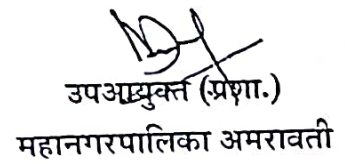 उपआयुक्त (प्रशा.)
महानगरपालिका अमरावती